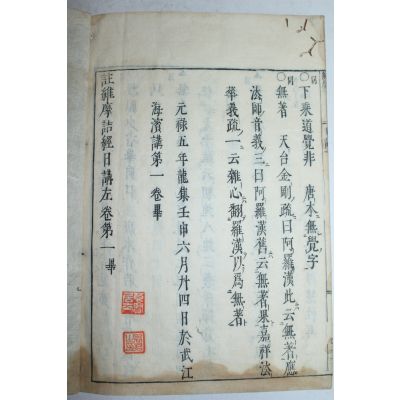 ○下乘道覺非 唐本無覺字
○無著 天台金剛疏曰阿羅漢此云無著應
法師音義三曰阿羅漢舊云無著果嘉祥法
華義疏一云雜心翻羅漢以爲無著
元祿五年龍集壬申六月廿四日於武江
海濱講第一卷畢
註維摩詰經日講左卷第一 畢